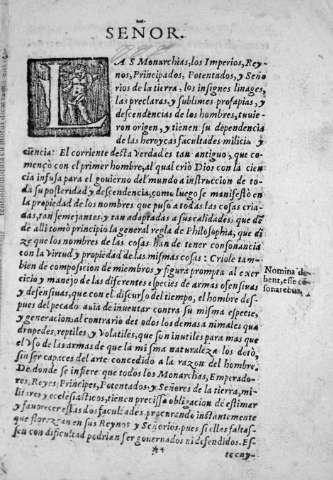 SEÑOR.
LAS Monarchias, los Imperios, Rey-
nos, Principados, Potentados, y Seño
rios de la tierra, los insignes linages,
las preclaras, y sublimes prosapias, y
descendencias de los hombres, tuuie-
ron origen, y tienen su dependencia
de las heroycas facultades milicia y
ciencia: El corriente desta Verdad es tan antiguo, que co-
mençò con el primer hombre, al qual criò Dios con la cien
cia infusa para el gouierno del mundo a instruccion de to-
da su posteridad y descendencia, como luego se manifestò en
la propiedad de los nombres que puso a todas las cosas cria-
das, tan semejantes, y tan adaptadas a sus calidades, que dẽ
de alli como principio la general regla de Philosophia, que di
ze que los nombres de las cosas han de tener consonancia
con la Virtud y propiedad de las mismas cosas: Criole tam
bien de composicion de miembros y figura prompta al exer
cicio y manejo de las diferentes especies de armas ofensiuas
y defensiuas, que con el discurso del tiempo, el hombre des-
pues del pecado auia de inuentar contra su misma especie,
y generacion, al contrario de todos los demas animales qua
drupedes, reptiles, y Volatiles, que son inutiles para mas que
el Vso de las armas de que la misma naturaleza los dotò,
sin ser capaces del arte concedido a la razon del hombre.
De donde se infiere que todos los Monarchas, Emperado-
res, Reyes, Principes, Potentados, y Señores de la tierra, mi-
litares y ecclesiasticos, tienen precissa obligacion de estimar
y fauorecer estas dos facultades, procurando instantemente
que florezcan en sus Reynos y Señorios, pues si ellas faltas-
sen con dificultad podrian ser gouernados ni defendidos. Es-
to cuy-
Nomina de-
bent, esse cõ
sona rebus,